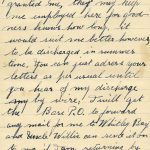 granted me, they may keep
me employed here for Good-
ness knows how long. It
would suit me better however
to be discharged in summer
time. You can just adress your
letters as per usual until
you hear of my discharge
by wire. I will get
the Base P.O. to forward
any mail for me to Whitby Ray
and Uncle Willie can send it on
if I am returning by